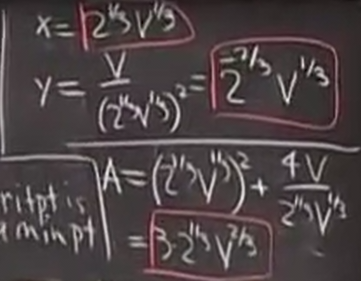 x = 2^{1/3} V^{1/3}
y = \frac{V}{(2^{1/3} V^{1/3})^2} = 2^{-2/3} V^{1/3}
critpt is
a min pt
A = (2^{1/3} V^{1/3})^2 + \frac{4V}{2^{1/3} V^{1/3}}
= 3·2^{2/3} V^{2/3}